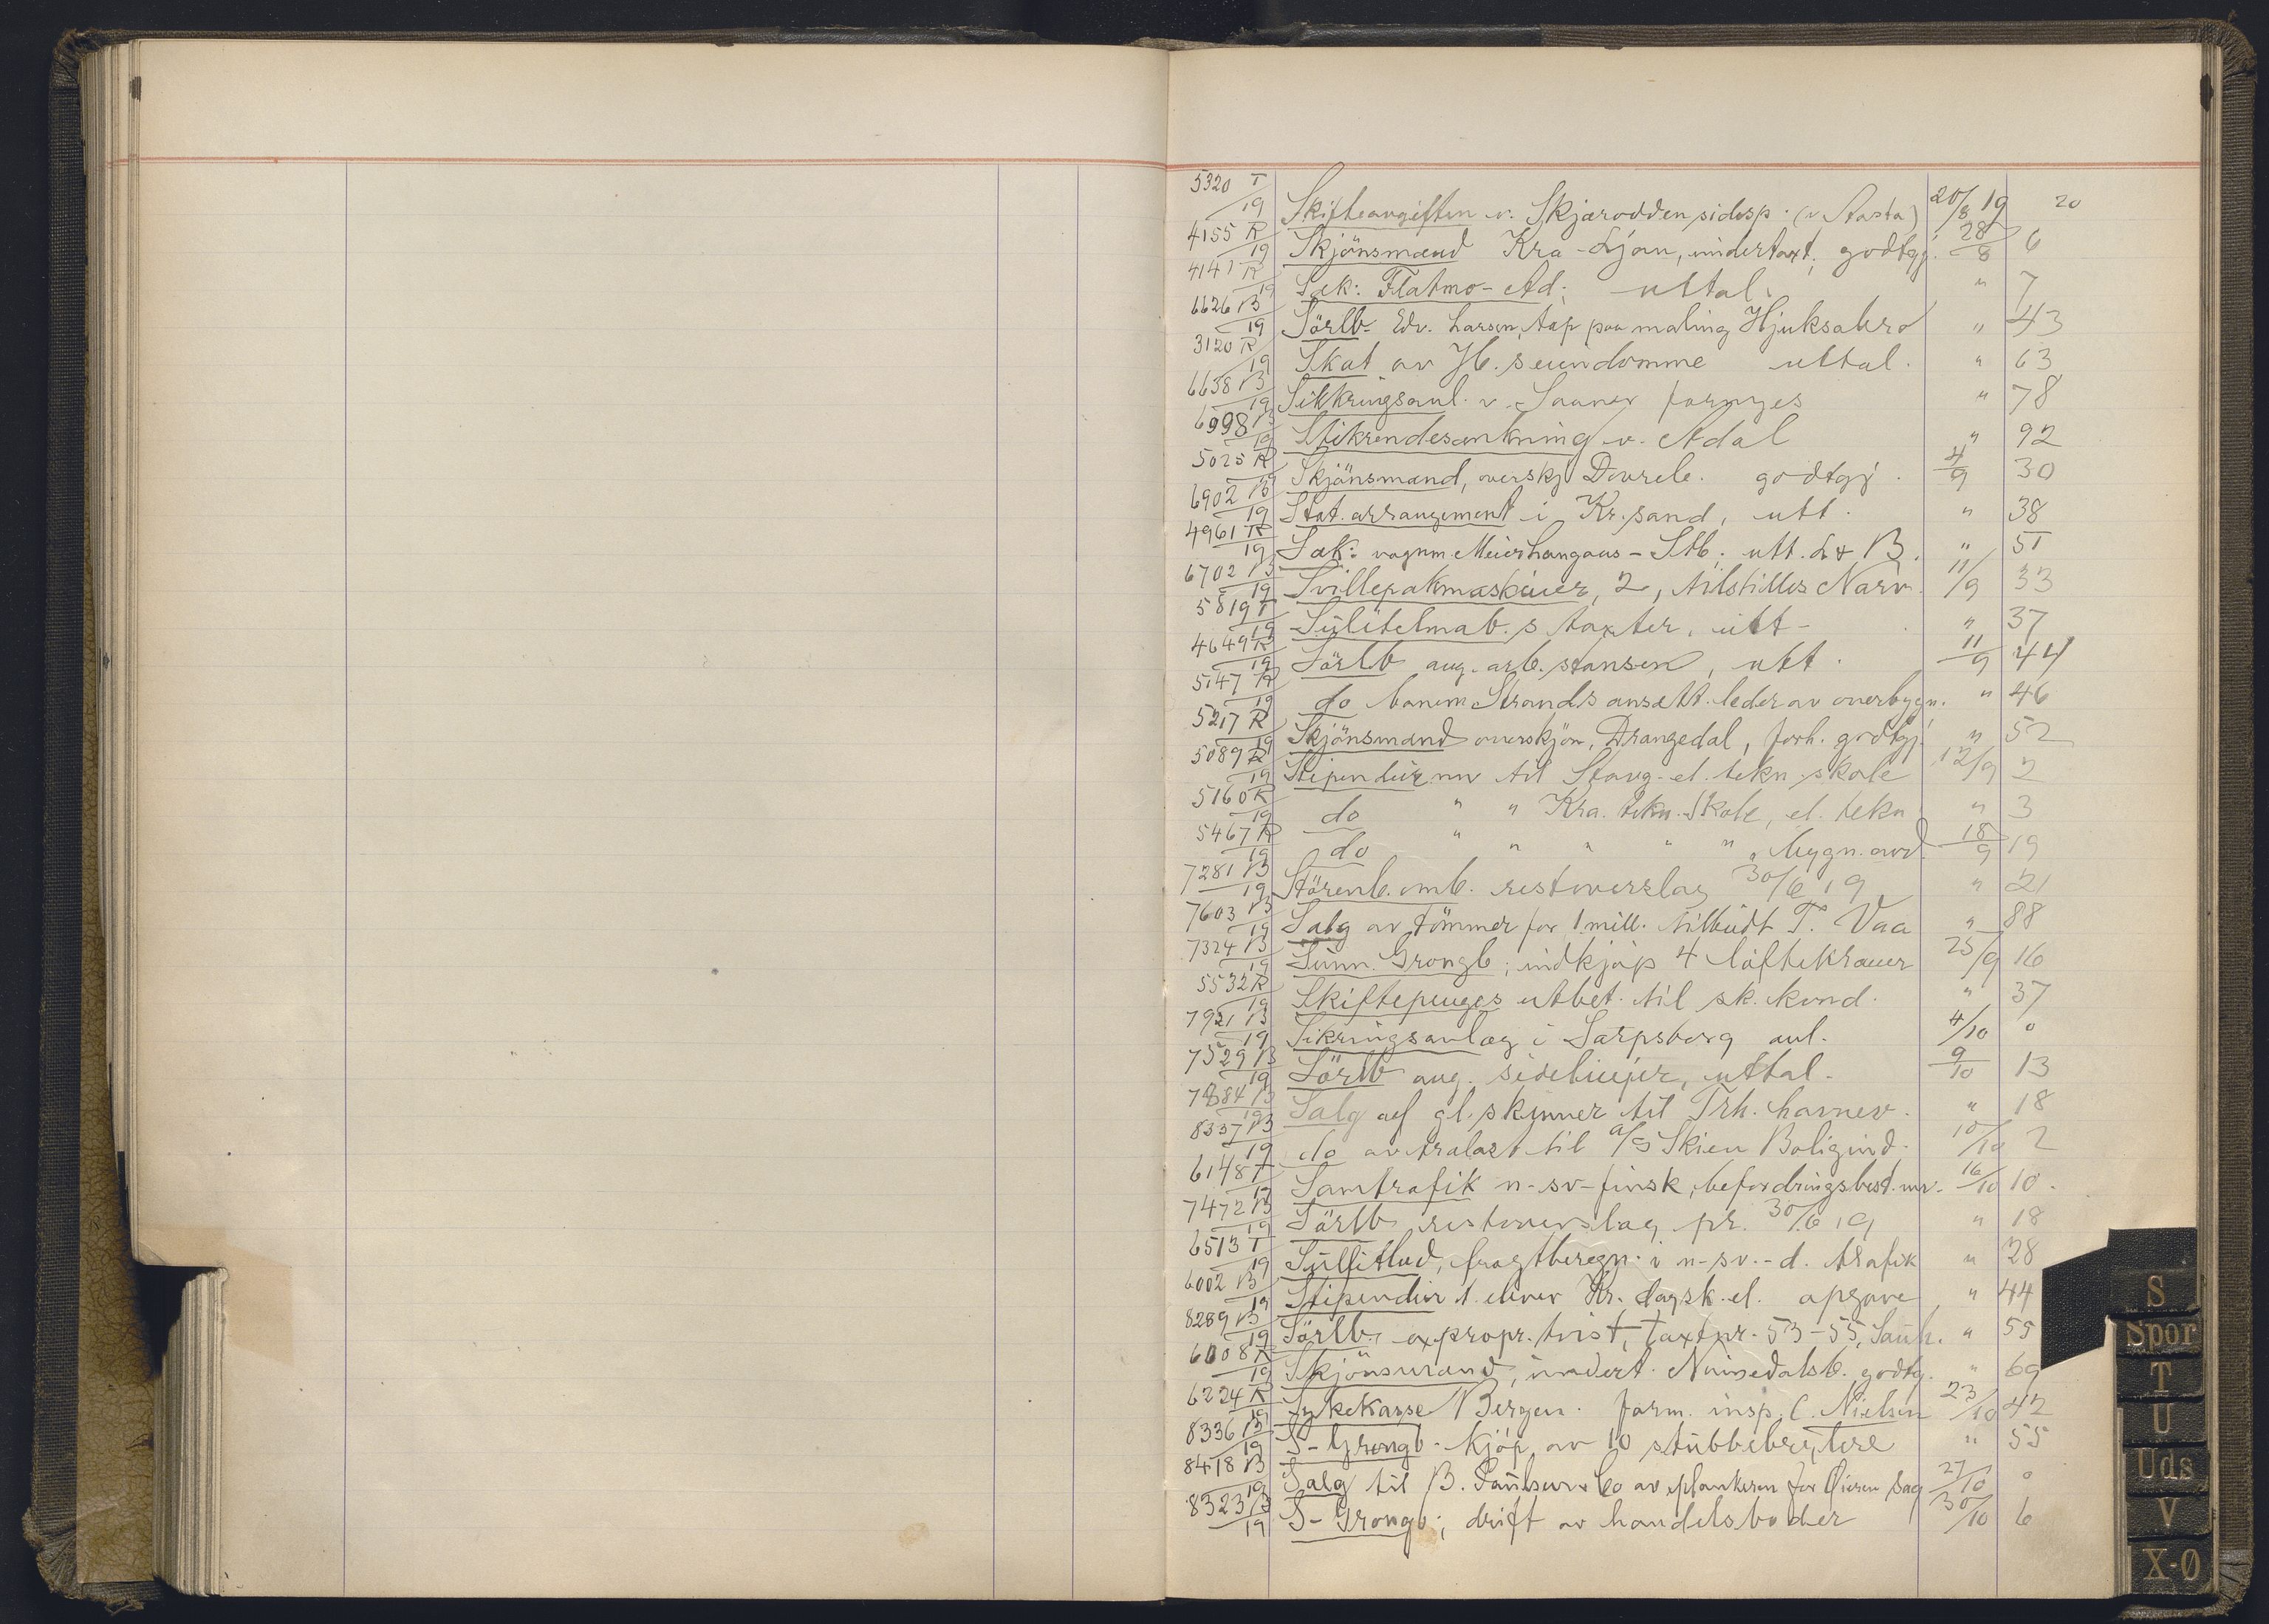 5320 T/19 Skifteavgiften v. Skjærodden sidesp. (v Aasta) 20/8 19 20
4155 R/19 Skjönsmænd Kra-Ljan, undertaxt, godtgj. 28/8 6
4141 R/19 Sak: Flatmo- uttal. " 7
6626 B/19 Sörlb. Edv. Larsen, tap paa maling Hjuksabro " 43
3120 R/19 Skat av Jb.s eiendomme uttal. " 63
6638 B/19 Sikkringsanl. v. Sauner fornyes " 78
6998 B/19 Stikrendesænkning v. Ådal " 92
5025 R/19 Skjönsmænd, overskj Dovreb. godtgj. 4/9 30
6902 B/19 Stat. arrangement i Kr.sand, utt. " 38
4961 R/19 Sak: vognm. - Stb. utt. L & B. " 51
6702 B/19 Svillepakmaskiner, 2, tilstilles Narv. 11/9 33
5819 T/19 Sulitelmab.s taxter, utt- " 37
4649 R/19 Sörlb ang. arb. stansen, utt. 11/9 44
5147 R/19 do banem. Strands ansætt. leder av overbygn. " 46
5217 R/19 Skjönsmænd overskjön, Drangedal, forh. godtgj. " 52
5089 R/19 Stipendier mv til Stavg. el. tekn. skole 12/9 2
5160 R/19 do " " Kra. tekn. Skole, el. tekn " 3
5467 R/19 do " " " " " " bygn. avd. 18/9 19
7281 B/19 Störenb. omb. restoverslag 30/6 19 " 21
7603 B/19 Salg av tömmer for 1 mill. tilbudt T. Vaa " 88
7324 B/19 Sunn. Grongb; indkjöp 4 löftekraner 25/9 16
5532 R/19 Skiftepenges utbet. til sk. kond. " 37
7921 B/19 Sikringsanlæg i Sarpsborg anl. 4/10 0
7529 B/19 Sörlb ang. sidelinjer, uttal. 9/10 13
7884 B/19 Salg af gl. skinner til Trh. havnev. " 18
8337 B/19 do av tralast til A/S Skien Boligind. 10/10 2
6148 T/19 Samtrafik n-sv-finsk, befordringsbest. mv. 16/10 10.
7472 B/19 Sörlb, restoverslag pr. 30/6 19 " 18
6513 T/19 Sulfitlud, fragtberegn. i n-sv.-d. trafik " 28
6002 B/19 Stipendier t. elever Kr. dagsk. el. opgave " 44
8289 B/19 Sörlb. expropr. tvist, taxtnr. 53-55, Sauh. " 55
6008 R/19 Skjönsmænd, undert. Numedalsb. godtg. " 69
6224 R/19 Sykekasse Bergen. form. insp. C. Nielsen 23/10 42
8336 B/19 S-Grongb. kjöp av 10 stubbebrytere " 55
8418 B/19 Salg til B. Paulsen & Co av plankeren for Öieren Sag 27/10 0
8323 B/19 S-Grongb; drift av handelsboder 30/10 6
S
Spor
T
U
Uds
V
X-Ø